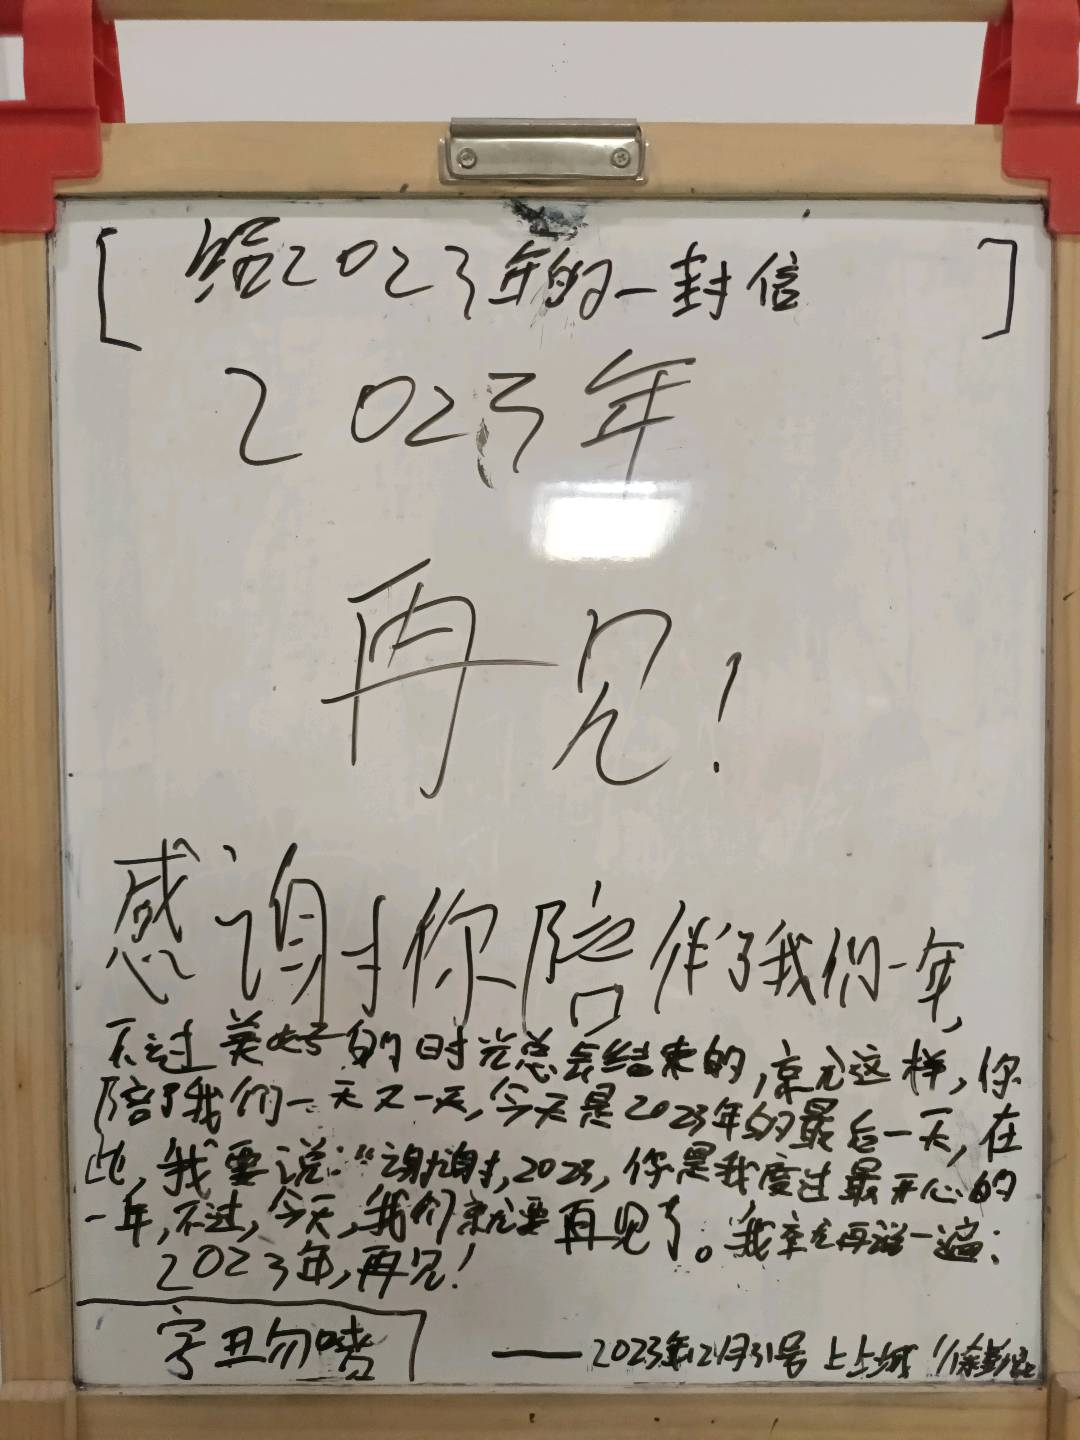 [ 给2023年的一封信 ]
2023年
再见!
感谢你陪伴了我们一年,
不过美好的时光总会结束的,就这样,你
陪了我们一天又一天,今天是2023年的最后一天,在
此,我要说:“谢谢,2023,你是我度过最开心的
一年,不过,今天,我们就要再见了。我就再说一遍:
2023年,再见!
字丑勿喷
——2023年12月31号 上上城